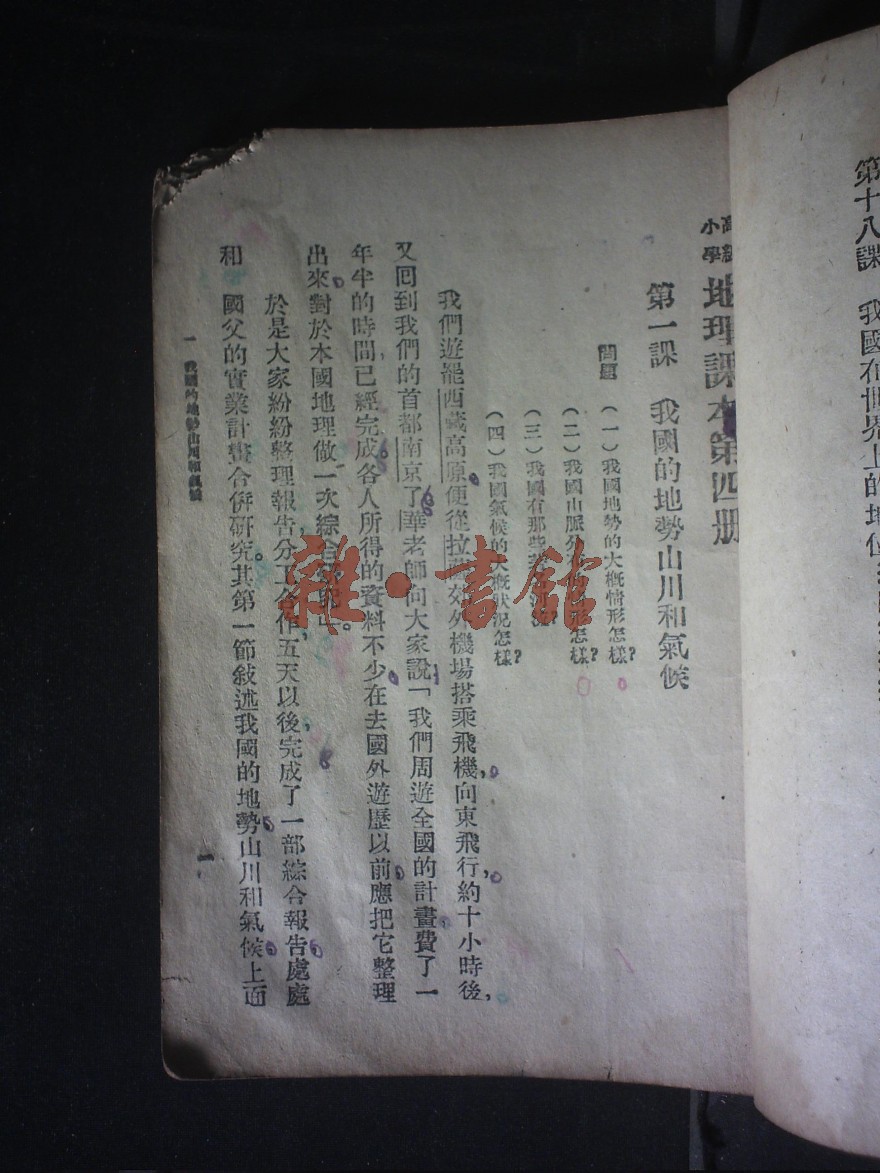 第十八課　我國在世界上的地位
高級小學　地理課本第四册
第一課　我國的地勢山川和氣候
問題　（一）我國地勢的大概情形怎樣？
（二）我國山脈分
形怎樣？
（三）我國有那些
（四）我國氣候的大概狀況怎樣？
我們遊罷西藏高原，便從拉薩郊外機場搭乘飛機，向東飛行，約十小時後，
又回到我們的首都南京了。華老師向大家說：「我們周遊全國的計畫，費了一
年半的時間，已經完成。各人所得的資料不少，在去國外遊歷以前，應把它整理
出來，對於本國地理做一次綜合研究」。
於是大家紛紛整理報告，分工合作，五天以後，完成了一部綜合報告，處處
和　國父的實業計畫合併研究。其第一節敍述我國的地勢山川和氣候，上面
一　我國的地勢山川和氣候
一
雜·書館